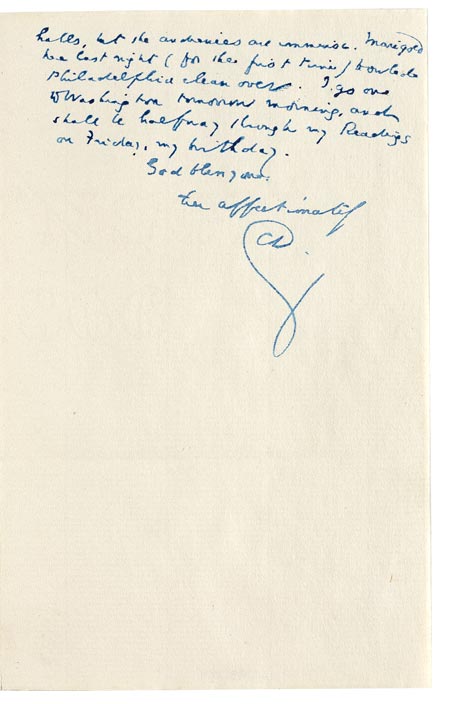 halls, but the audiences are immense. Marigold
here last night (for the first time) bowled
Philadelphia clean over. I go on
to Washington tomorrow morning, and
shall be halfway through my Readings
on Friday, my birthday.
God bless you.
Ever affectionately
CD.